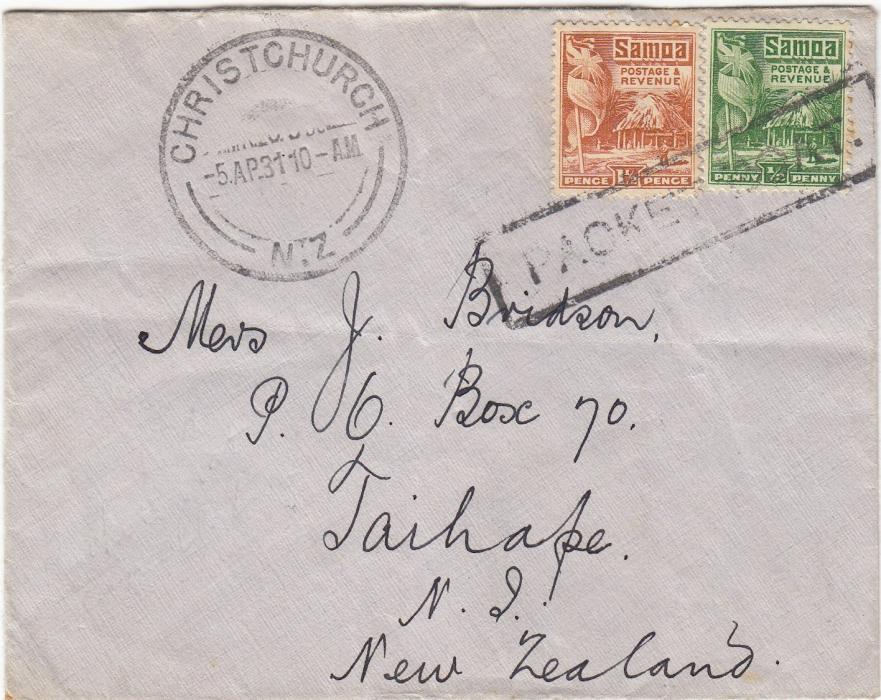 CHRISTCHURCH
-5.AP.31 10-AM
N.Z
Samoa
POSTAGE &
REVENUE
PENCE 1½ PENCE
Samoa
POSTAGE &
REVENUE
PENNY ½ PENNY
PACKET
Mrs J. Bridson,
P. O. Box 70.
Taihape.
N. I.
New Zealand.